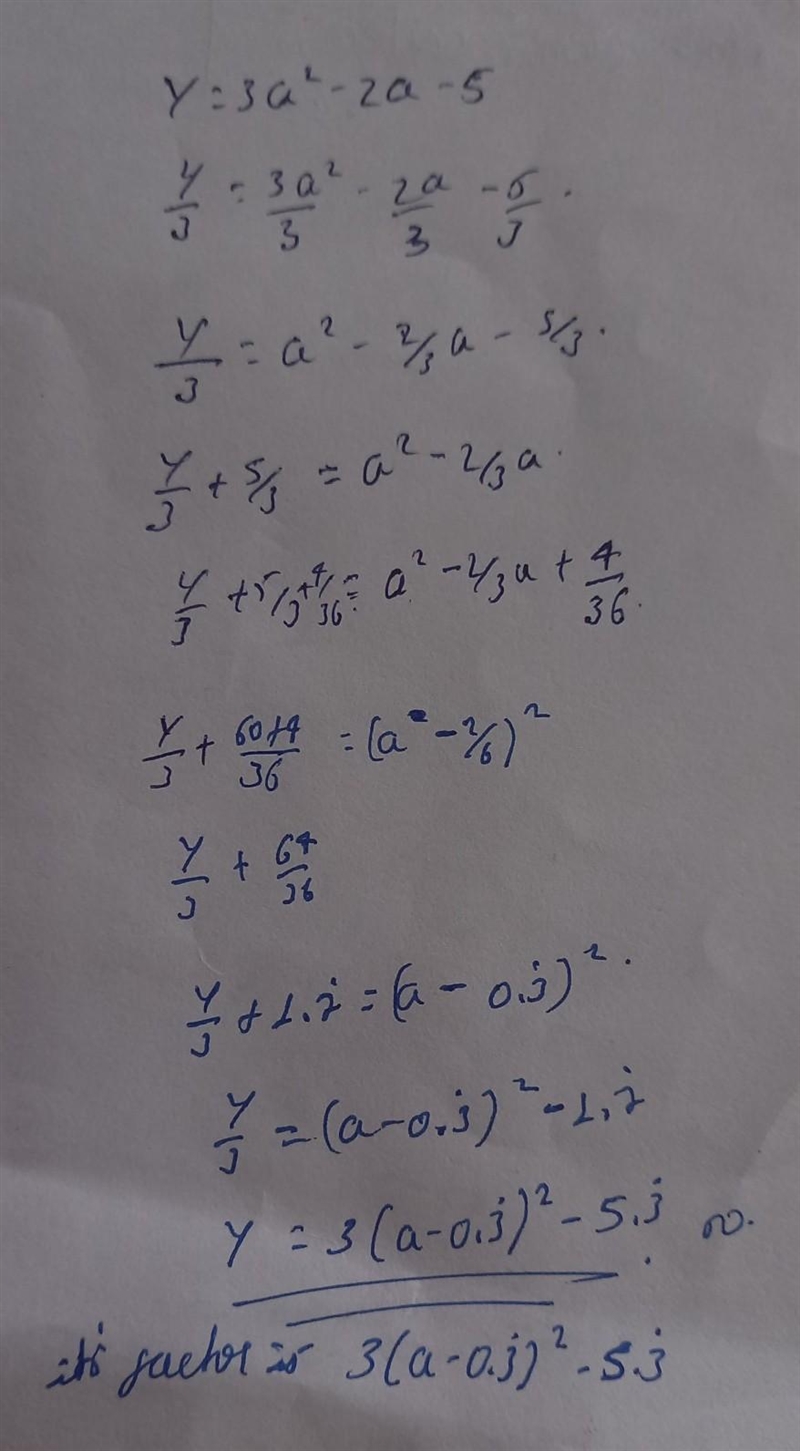 Y = 3a² - 2a - 5
Y/3 = 3a²/3 - 2a/3 - 5/3.
Y/3 = a² - 2/3a - 5/3.
Y/3 + 5/3 = a² - 2/3a.
Y/3 + 5/3 + 4/36 = a² - 2/3a + 4/36.
Y/3 + 60+4/36 = (a - 2/6)²
Y/3 + 64/36
Y/3 + 1.7̇ = (a - 0.3̇)².
Y/3 = (a - 0.3̇)² - 1.7̇
Y = 3(a - 0.3̇)² - 5.3̇
its factor is 3(a - 0.3̇)² - 5.3̇